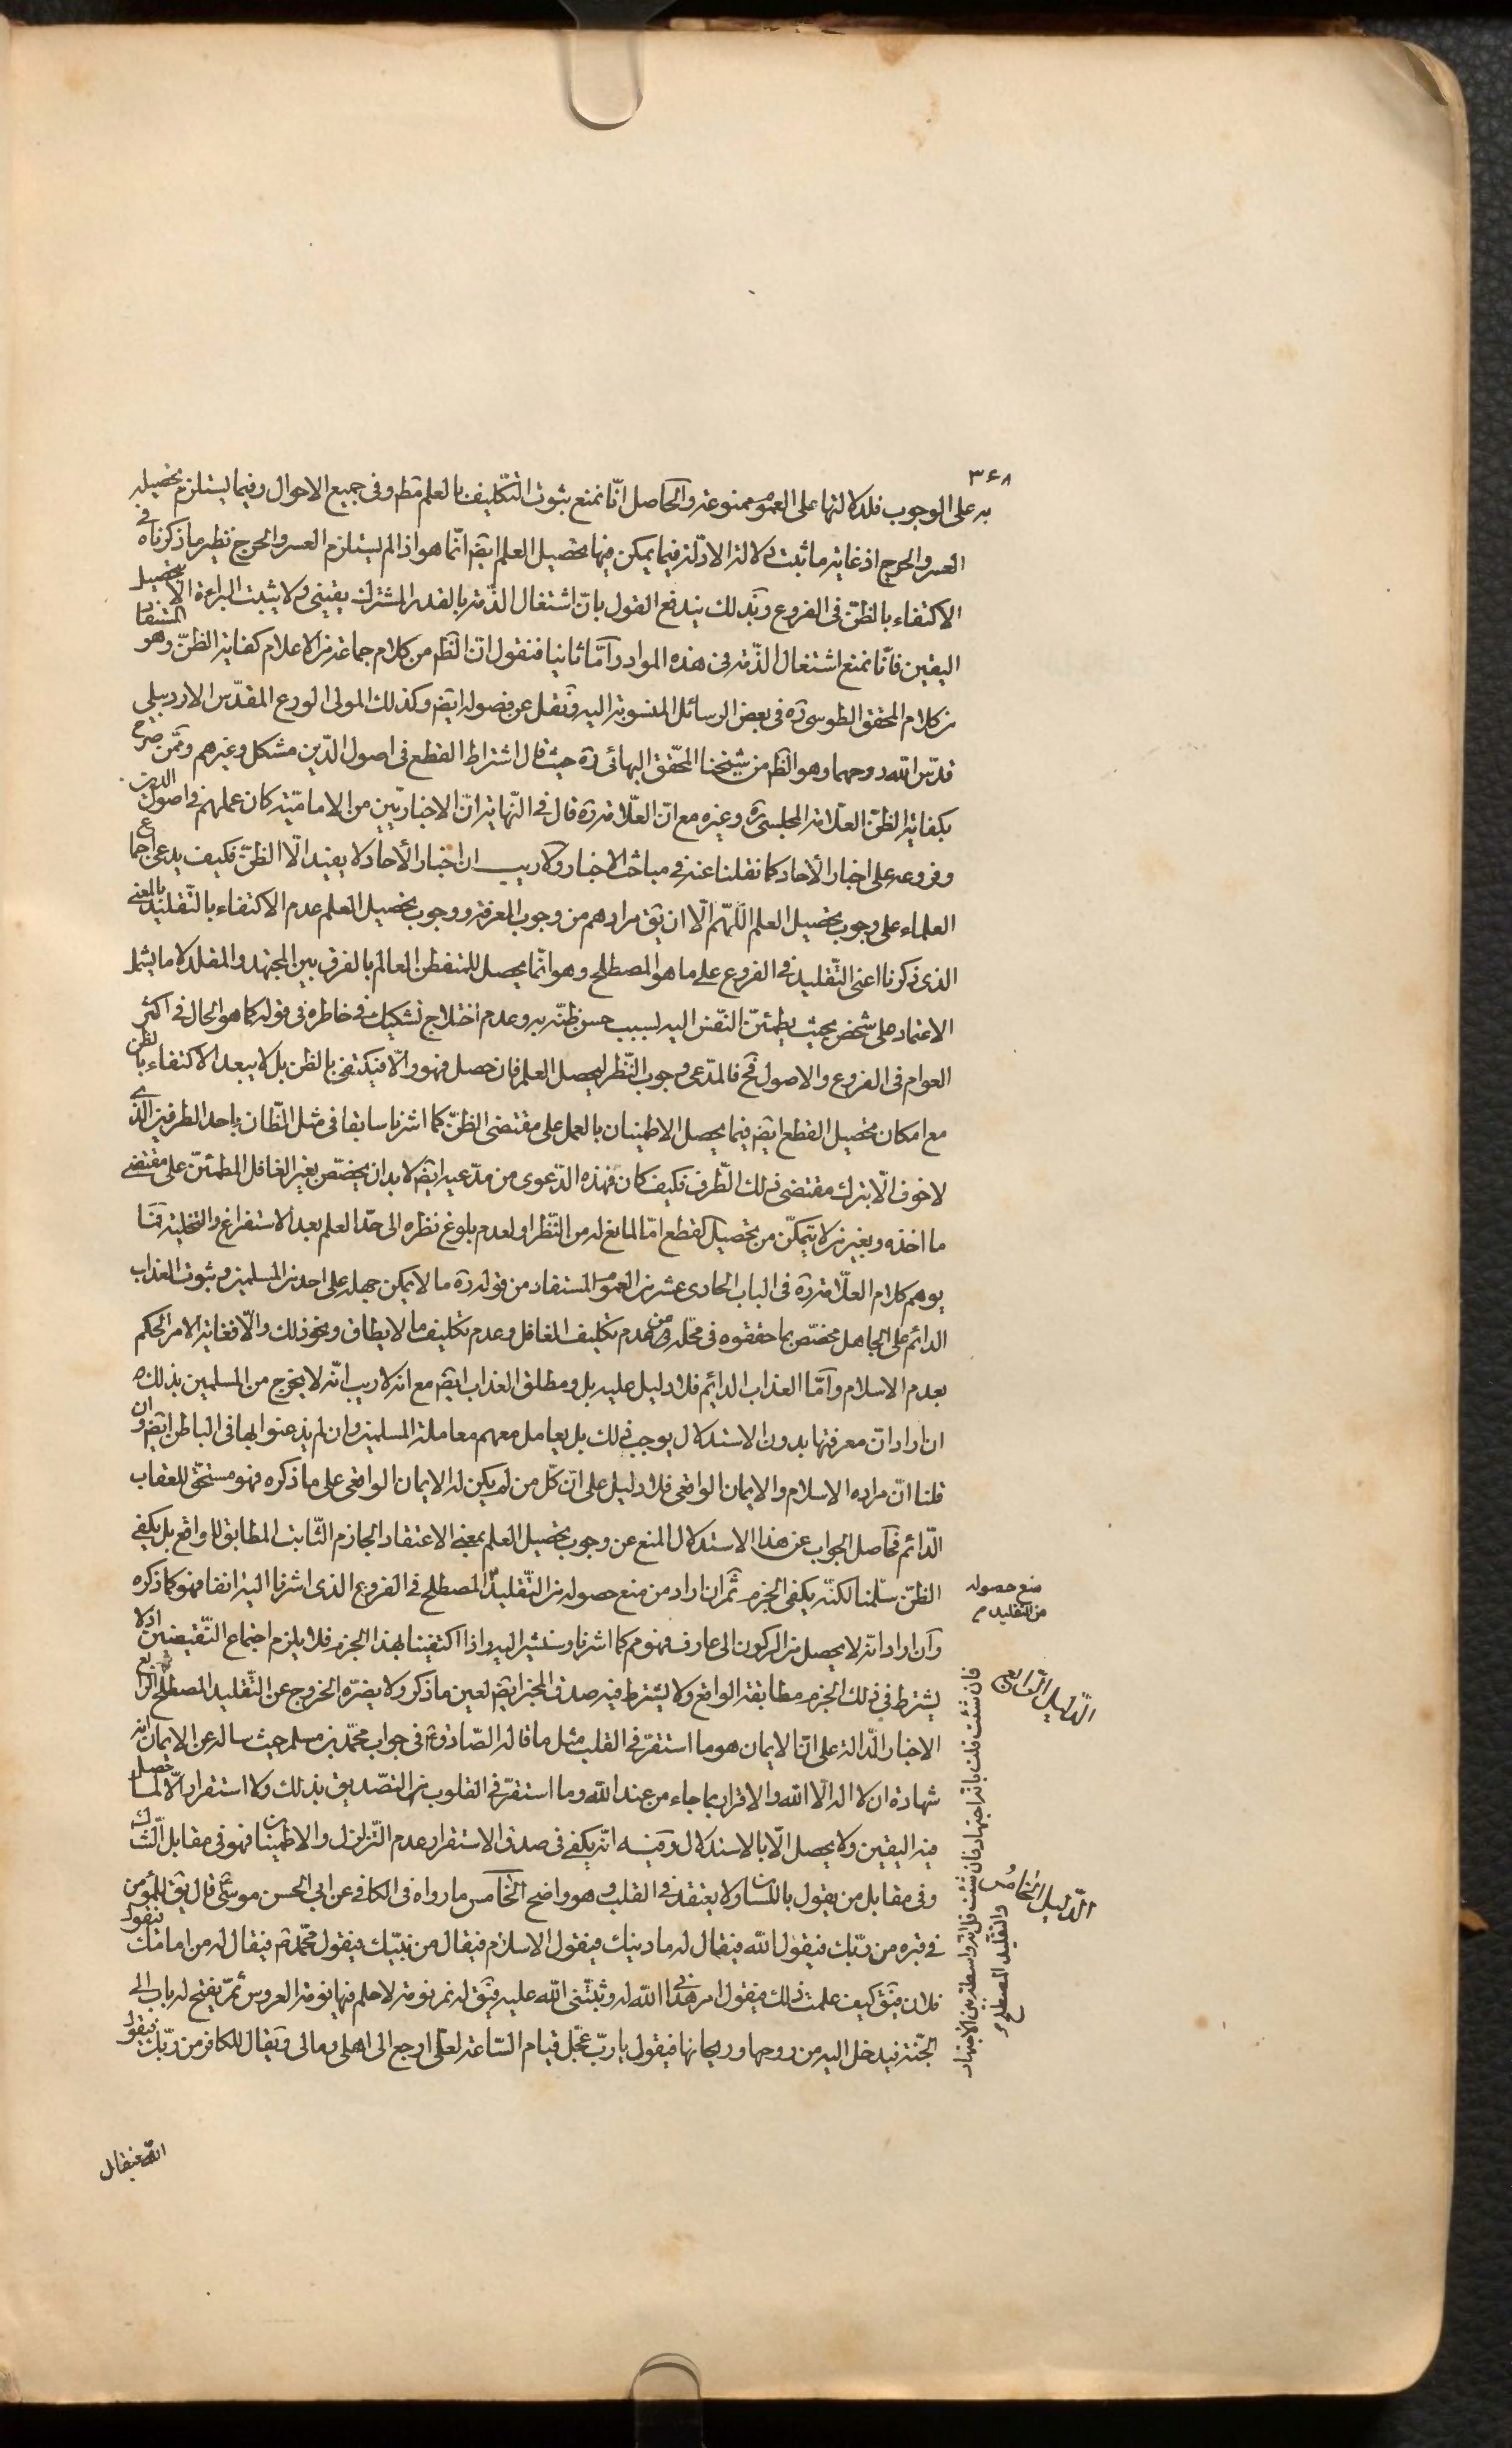 ۳۶۸
به على الوجوب فلدلالتها على العموم ممنوعة والحاصل انّا نمنع ثبوت التّكليف بالعلم مطم وفى جميع الاحوال وفيما يستلزم تحصيله
العسر والحرج اذ غاية ما ثبت دلالة الادلّة فيما يمكن فيها تحصيل العلم ايضم انّما هو اذا لم يستلزم العسر والحرج نظير ما ذكرناه فى
الاكتفاء بالظنّ فى الفروع وبذلك يندفع القول بانّ اشتغال الذّمة بالقدر المشترك يقينى ولا يثبت البراءة الّا بتحصيل
اليقين فانّا نمنع اشتغال الذّمة فى هذه المواد وامّا ثانيا فنقول انّ الظم من كلام جماعة من الاعلام كفاية الظنّ وهو المستفا
من كلام المحقق الطوسى ره فى بعض الرسائل المنسوبة اليه ونقل عن فصوله ايضم وكذلك المولى الورع المقدّس الاردبيلى
قدّس الله روحهما وهو الظم من شيخنا المحقّق البهائى ره حيث قال اشتراط القطع فى اصول الدّين مشكل وغيرهم وممّن صرّح
بكفاية الظنّ العلّامة المجلسىّ ره وغيره مع انّ العلّامة ره قال فى النّهاية انّ الاخباريّين من الاماميّة كان عملهم فى اصول الدين
وفروعه على اخبار الآحاد كما نقلنا عنه فى مباحث الاخبار ولا ريب ان اخبار الآحاد لا يفيد الّا الظنّ فكيف يدعى اجماع
العلماء على وجوب تحصيل العلم اللّهمّ الّا ان يق مرادهم من وجوب المعرفة ووجوب تحصيل العلم عدم الاكتفاء بالتّقليد بالمعنى
الذى ذكرنا اعنى التّقليد فى الفروع على ما هو المصطلح وهو انّما يحصل للمتفطن العالم بالفرق بين المجتهد والمقلد لا ما يشمل
الاعتماد على شخص بحيث يطمئنّ النّفس اليه بسبب حسن ظنّه به وعدم اختلاج تشكيك فى خاطره فى قوله كما هو الحال فى اكثر
العوام فى الفروع والاصول فح فالمدّعى وجوب النّظر ليحصل العلم فان حصل فهو والّا فيكتفى بالظن بل لا يبعد الاكتفاء بالظن
مع امكان تحصيل القطع ايضم فيما يحصل الاطمينان بالعمل على مقتضى الظنّ كما اشرنا سابقا فى مثل الظّان باحد الطرفين الّذى
لا خوف الّا بترك مقتضى ذلك الطّرف فكيف كان فهذه الدّعوى من مدّعيه ايضم لا بد ان يختصّ بغير الغافل المطمئنّ على مقتضى
ما اخذه وبغير من لا يتمكّن من تحصيل القطع امّا لمانع له من النّظر او لعدم بلوغ نظره الى حدّ العلم بعد الاستفراغ والتخلية فما
يوهم كلام العلّامة ره فى الباب الحادى عشر من العموم المستفاد من قوله ره ما لا يمكن جهله على احد من المسلمين وثبوت العذاب
الدائم على الجاهل مختصّ بما حققوه فى محّله من عدم تكليف الغافل وعدم تكليف ما لا يطاق ونحو ذلك والّا فغاية الامر الحكم
بعدم الاسلام وامّا العذاب الدائم فلا دليل عليه بل ومطلق العذاب ايضم مع انه لا ريب انّه لا يخرج من المسلمين بذلك
ان اراد انّ معرفتها بدون الاستدلال يوجب ذلك بل يعامل معهم معاملة المسلمين وان لم يذعنوا بها فى الباطن ايضم وان
قلنا انّ مراده الاسلام والايمان الواقى فلا دليل على انّ كلّ من لم يكن له الايمان الواقى على ما ذكره فهو مستحقّ للعقاب
الدّائم فحاصل الجواب عن هذا الاستدلال المنع عن وجوب تحصيل العلم بمعنى الاعتقاد الجازم الثّابت المطابق للواقع بل يكفى
الظنّ سلّمنا لكنّه يكفى الجزم ثمّ ان اراد من منع حصوله من التّقليد المصطلح فى الفروع الذى اشرنا اليه انفا فهو كما ذكره
وان اراد انّه لا يحصل من الركون الى عارف فهو مم كما اشرنا وسنشير اليه واذا اكتفينا بهذا الجزم فلا يلزم اجتماع النّقيضين اذ لا
يشترط فى ذلك الجزم مطابقة الواقع ولا يشترط فيه صدق المخبر ايضم لعين ما ذكر ولا يضرّه الخروج عن التّقليد المصطلح الرابع
الاخبار الدّالة على انّ الايمان هو ما استقرّ فى القلب مثل ما قاله الصّادق ع فى جواب محمّد بن مسلم حيث ساله عن الايمان انه
شهادة ان لا اله الّا الله والاقرار بما جاء من عند الله وما استقرّ فى القلوب من التصّديق بذلك ولا استقرار الّا لما حصل
فيه اليقين ولا يحصل الّا بالاستدلال وفيه انّه يكفى فى صدق الاستقرار عدم التّزلزل والاطمينان فهو فى مقابل الشّك
وفى مقابل من يقول باللسان ولا يعتقد فى القلب وهو واضح الخامس ما رواه فى الكافى عن ابى الحسن موسى ع قال يق للمؤمن
فى قبره من ربّك فيقول الله فيقال له ما دينك فيقول الاسلام فيقال من نبيّك فيقول محمّد ص فيقال له من امامك فيقول
فلان فيق كيف علمت ذلك فيقول امر هدانى الله له وثبّتنى الله عليه فيق له نم نومة لا حلم فيها نومة العروس ثمّ يفتح له باب الى
الجنّة فيدخل اليه من روحها وريحانها فيقول يا ربّ عجّل قيام السّاعة لعلّى ارجع الى اهلى ومالى ويقال للكافر من ربّك فيقول
الله فيقال
منع حصوله
من التقليد م
الدّليل الرّابع
فان شئت قلت بانه اجتهاد فان شئت قل انّه واسطة بين الاجتهاد
والتقليد المصطلح
الدّليل الخامس